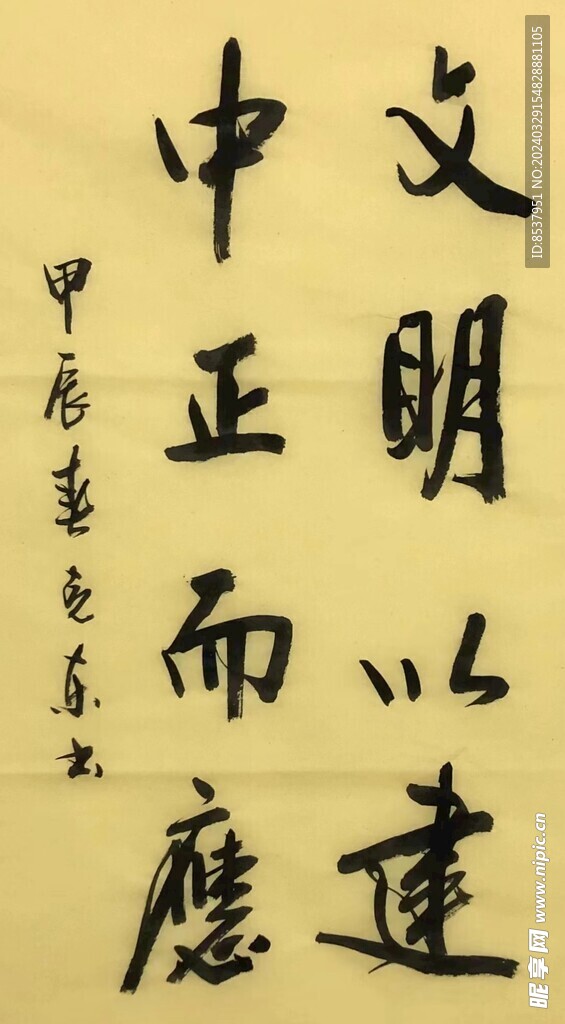 文明以建
中正而應
甲辰春克东书
ID:8537951 NO:20240329154828881105
昵享网 www.nipic.cn